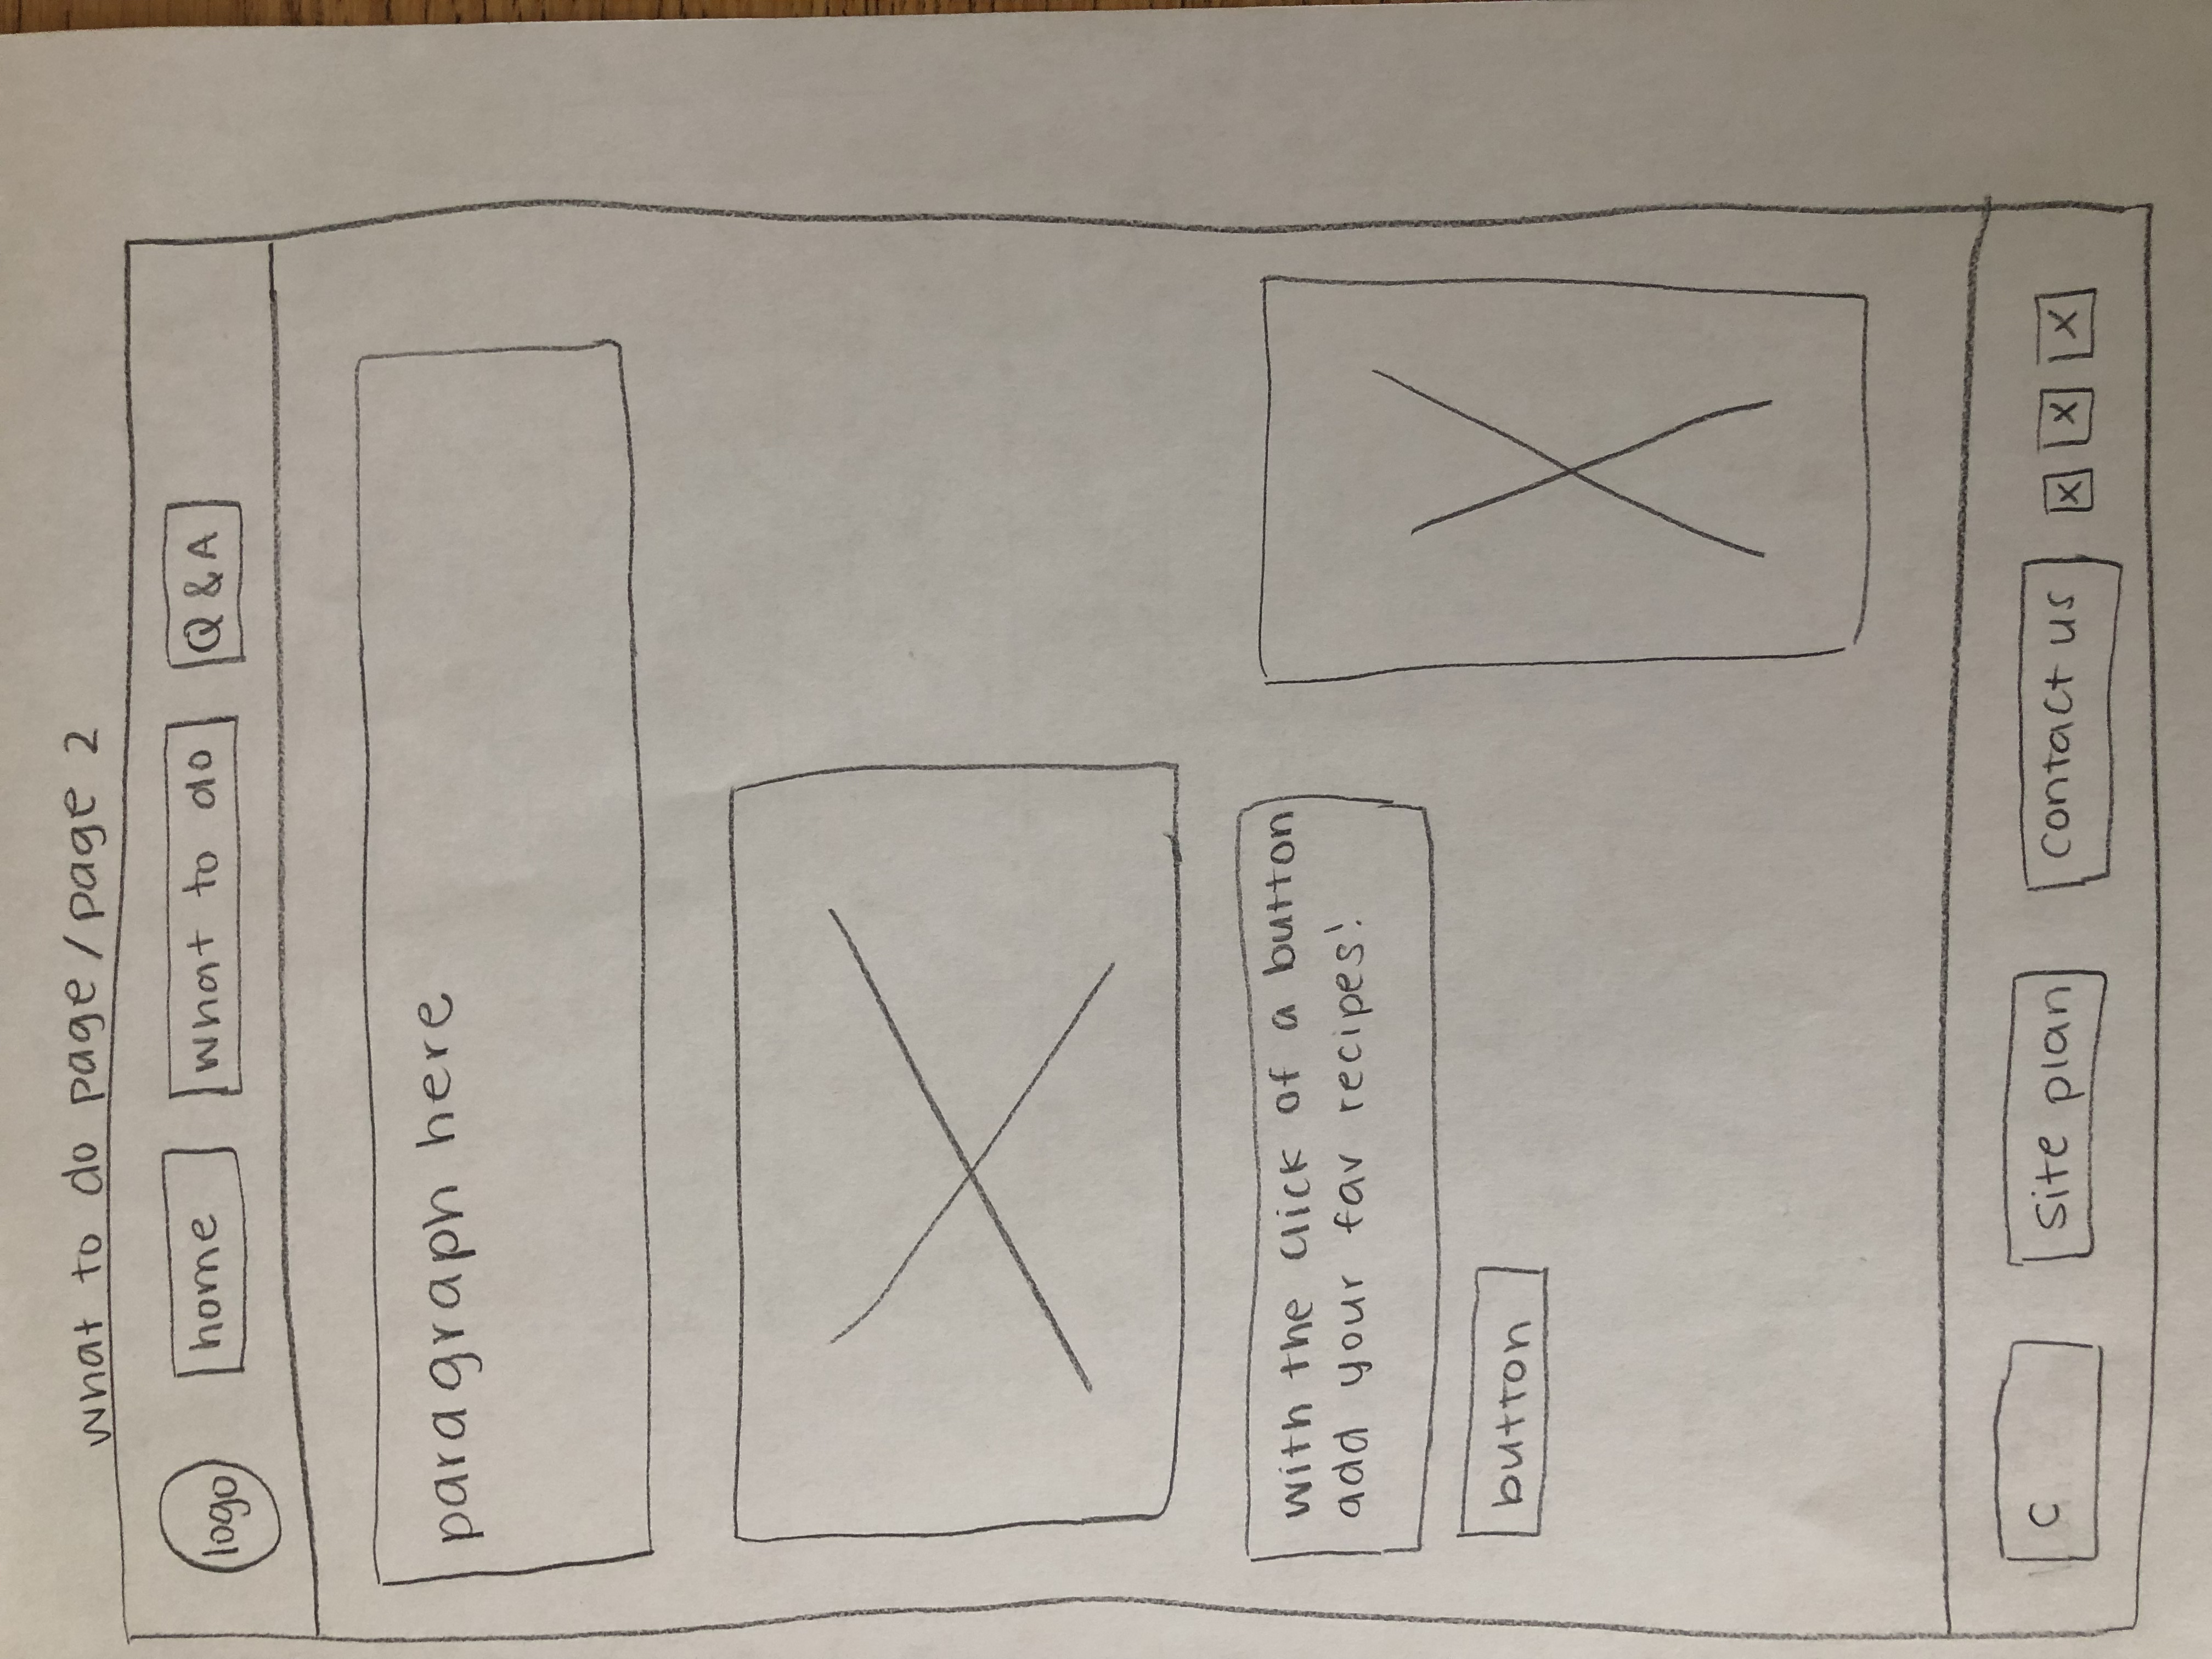 what to do page / page 2
logo
home
what to do
Q & A
paragraph here
with the click of a button
add your fav recipes!
button
C
site plan
contact us
X
X
X